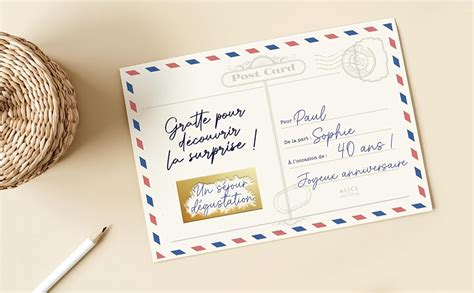 Post Card
Gratte pour
découvrir
la surprise !
Un séjour
dégustation
Pour Paul
De la part : Sophie
À l'occasion de : 40 ans !
Joyeux anniversaire
ALICE